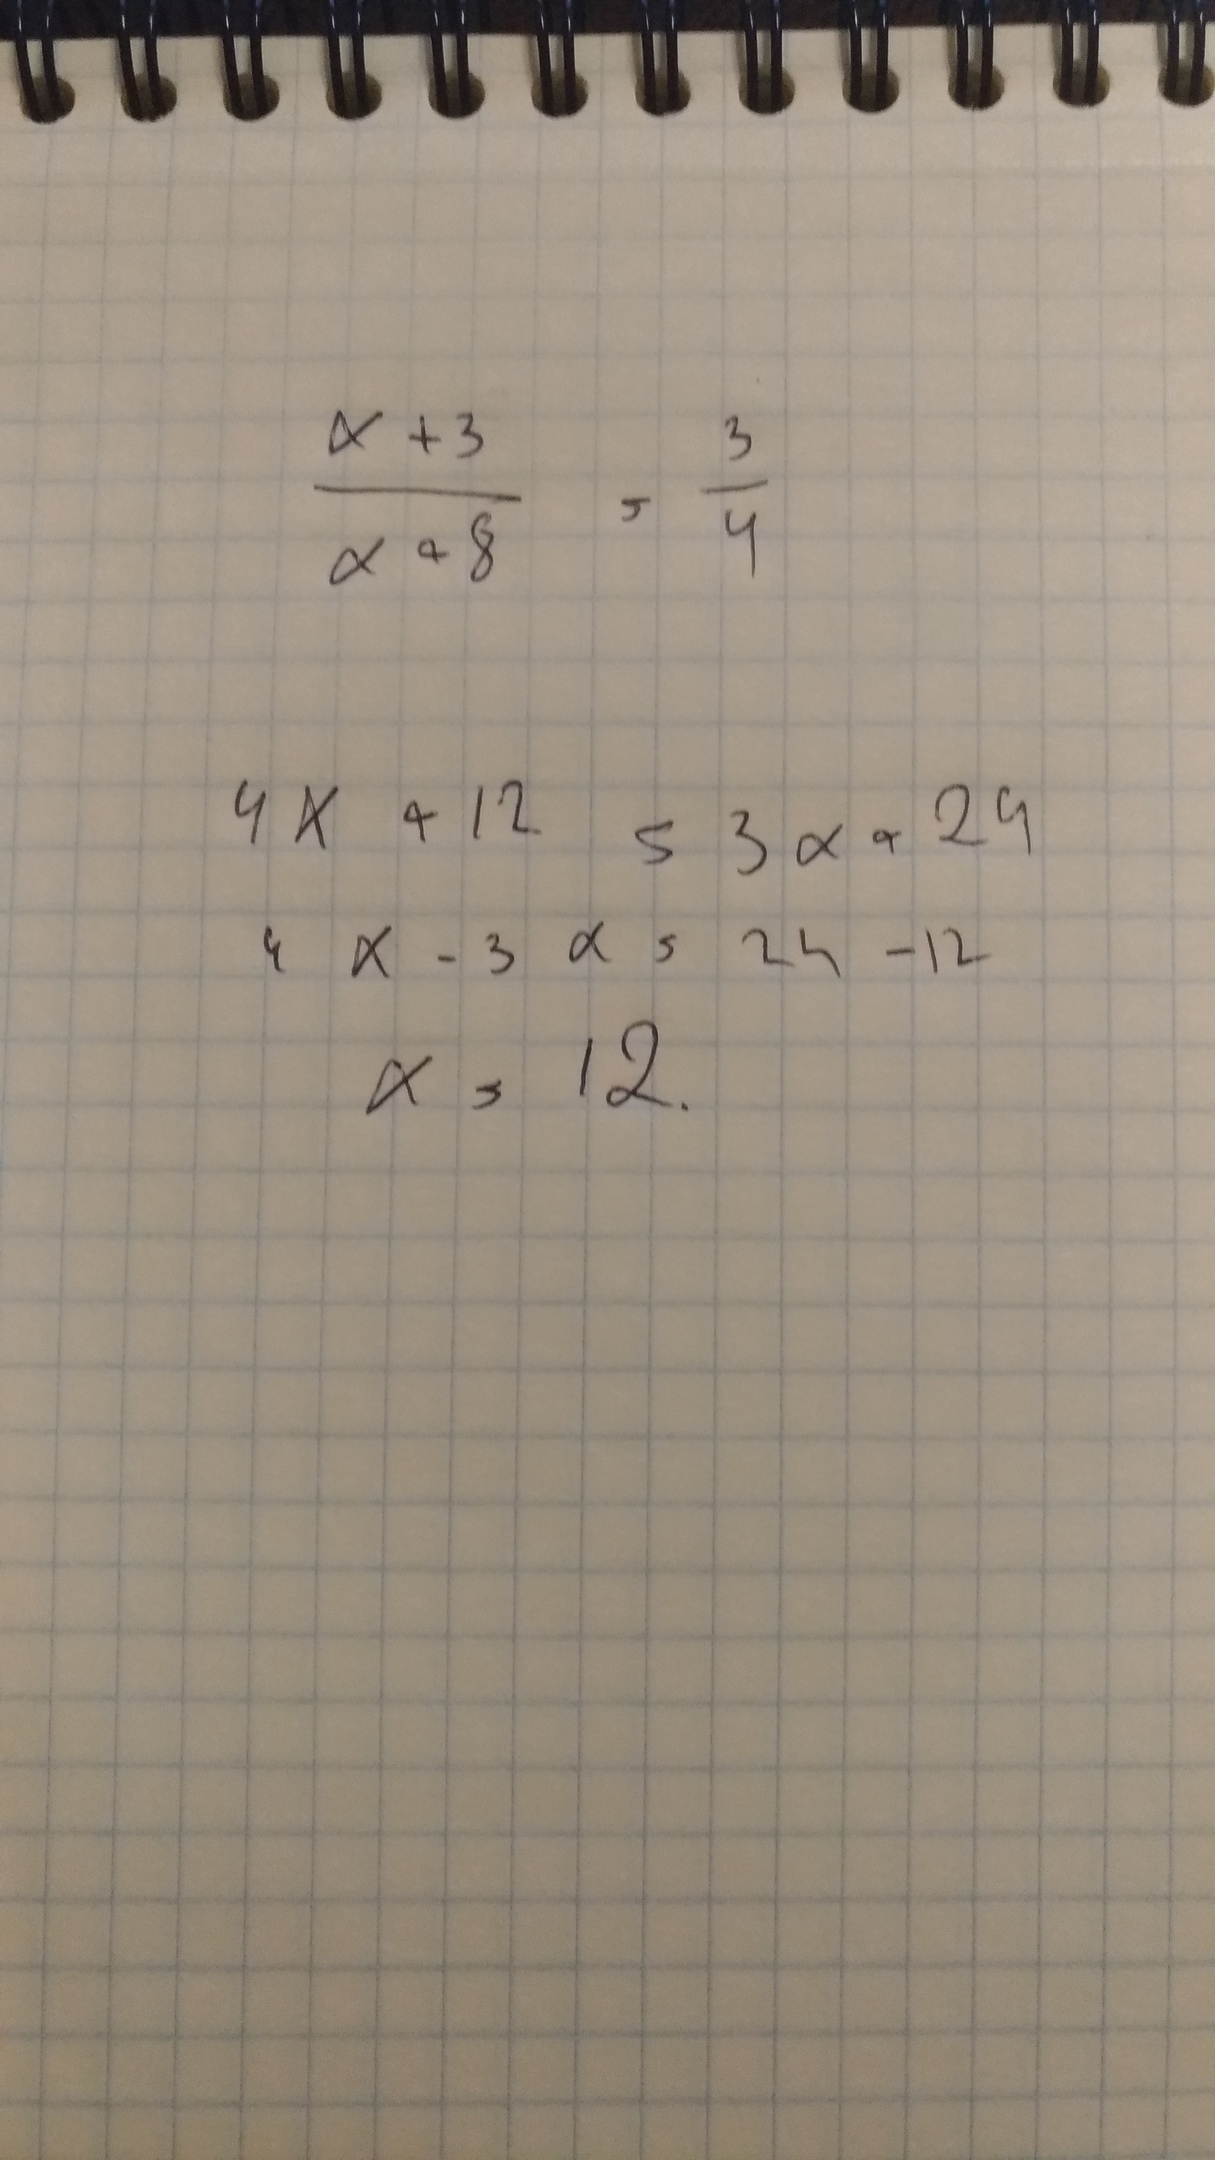 x + 3
x + 8 = 3
4
4x + 12 = 3x + 24
4x - 3x = 24 - 12
x = 12.